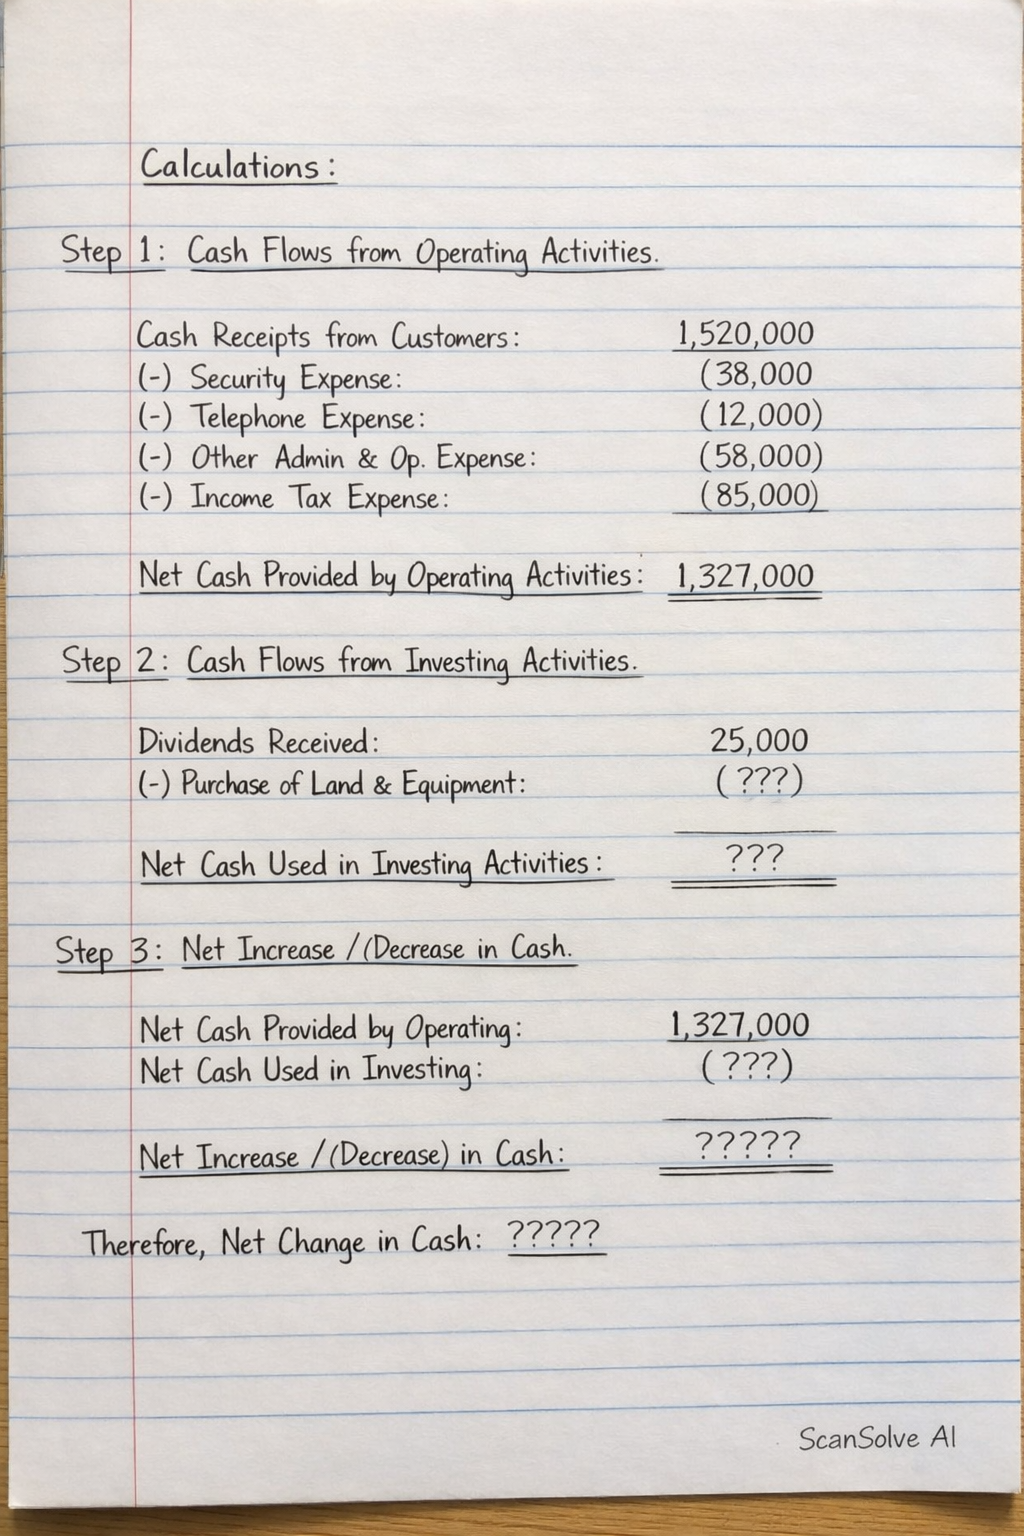 Calculations:
Step 1: Cash Flows from Operating Activities.
Cash Receipts from Customers: 1,520,000
(-) Security Expense: (38,000
(-) Telephone Expense: (12,000)
(-) Other Admin & Op. Expense: (58,000)
(-) Income Tax Expense: (85,000)
Net Cash Provided by Operating Activities: 1,327,000
Step 2: Cash Flows from Investing Activities.
Dividends Received: 25,000
(-) Purchase of Land & Equipment: (???)
Net Cash Used in Investing Activities: ???
Step 3: Net Increase /(Decrease in Cash.
Net Cash Provided by Operating: 1,327,000
Net Cash Used in Investing: (???)
Net Increase /(Decrease) in Cash: ?????
Therefore, Net Change in Cash: ?????
ScanSolve AI